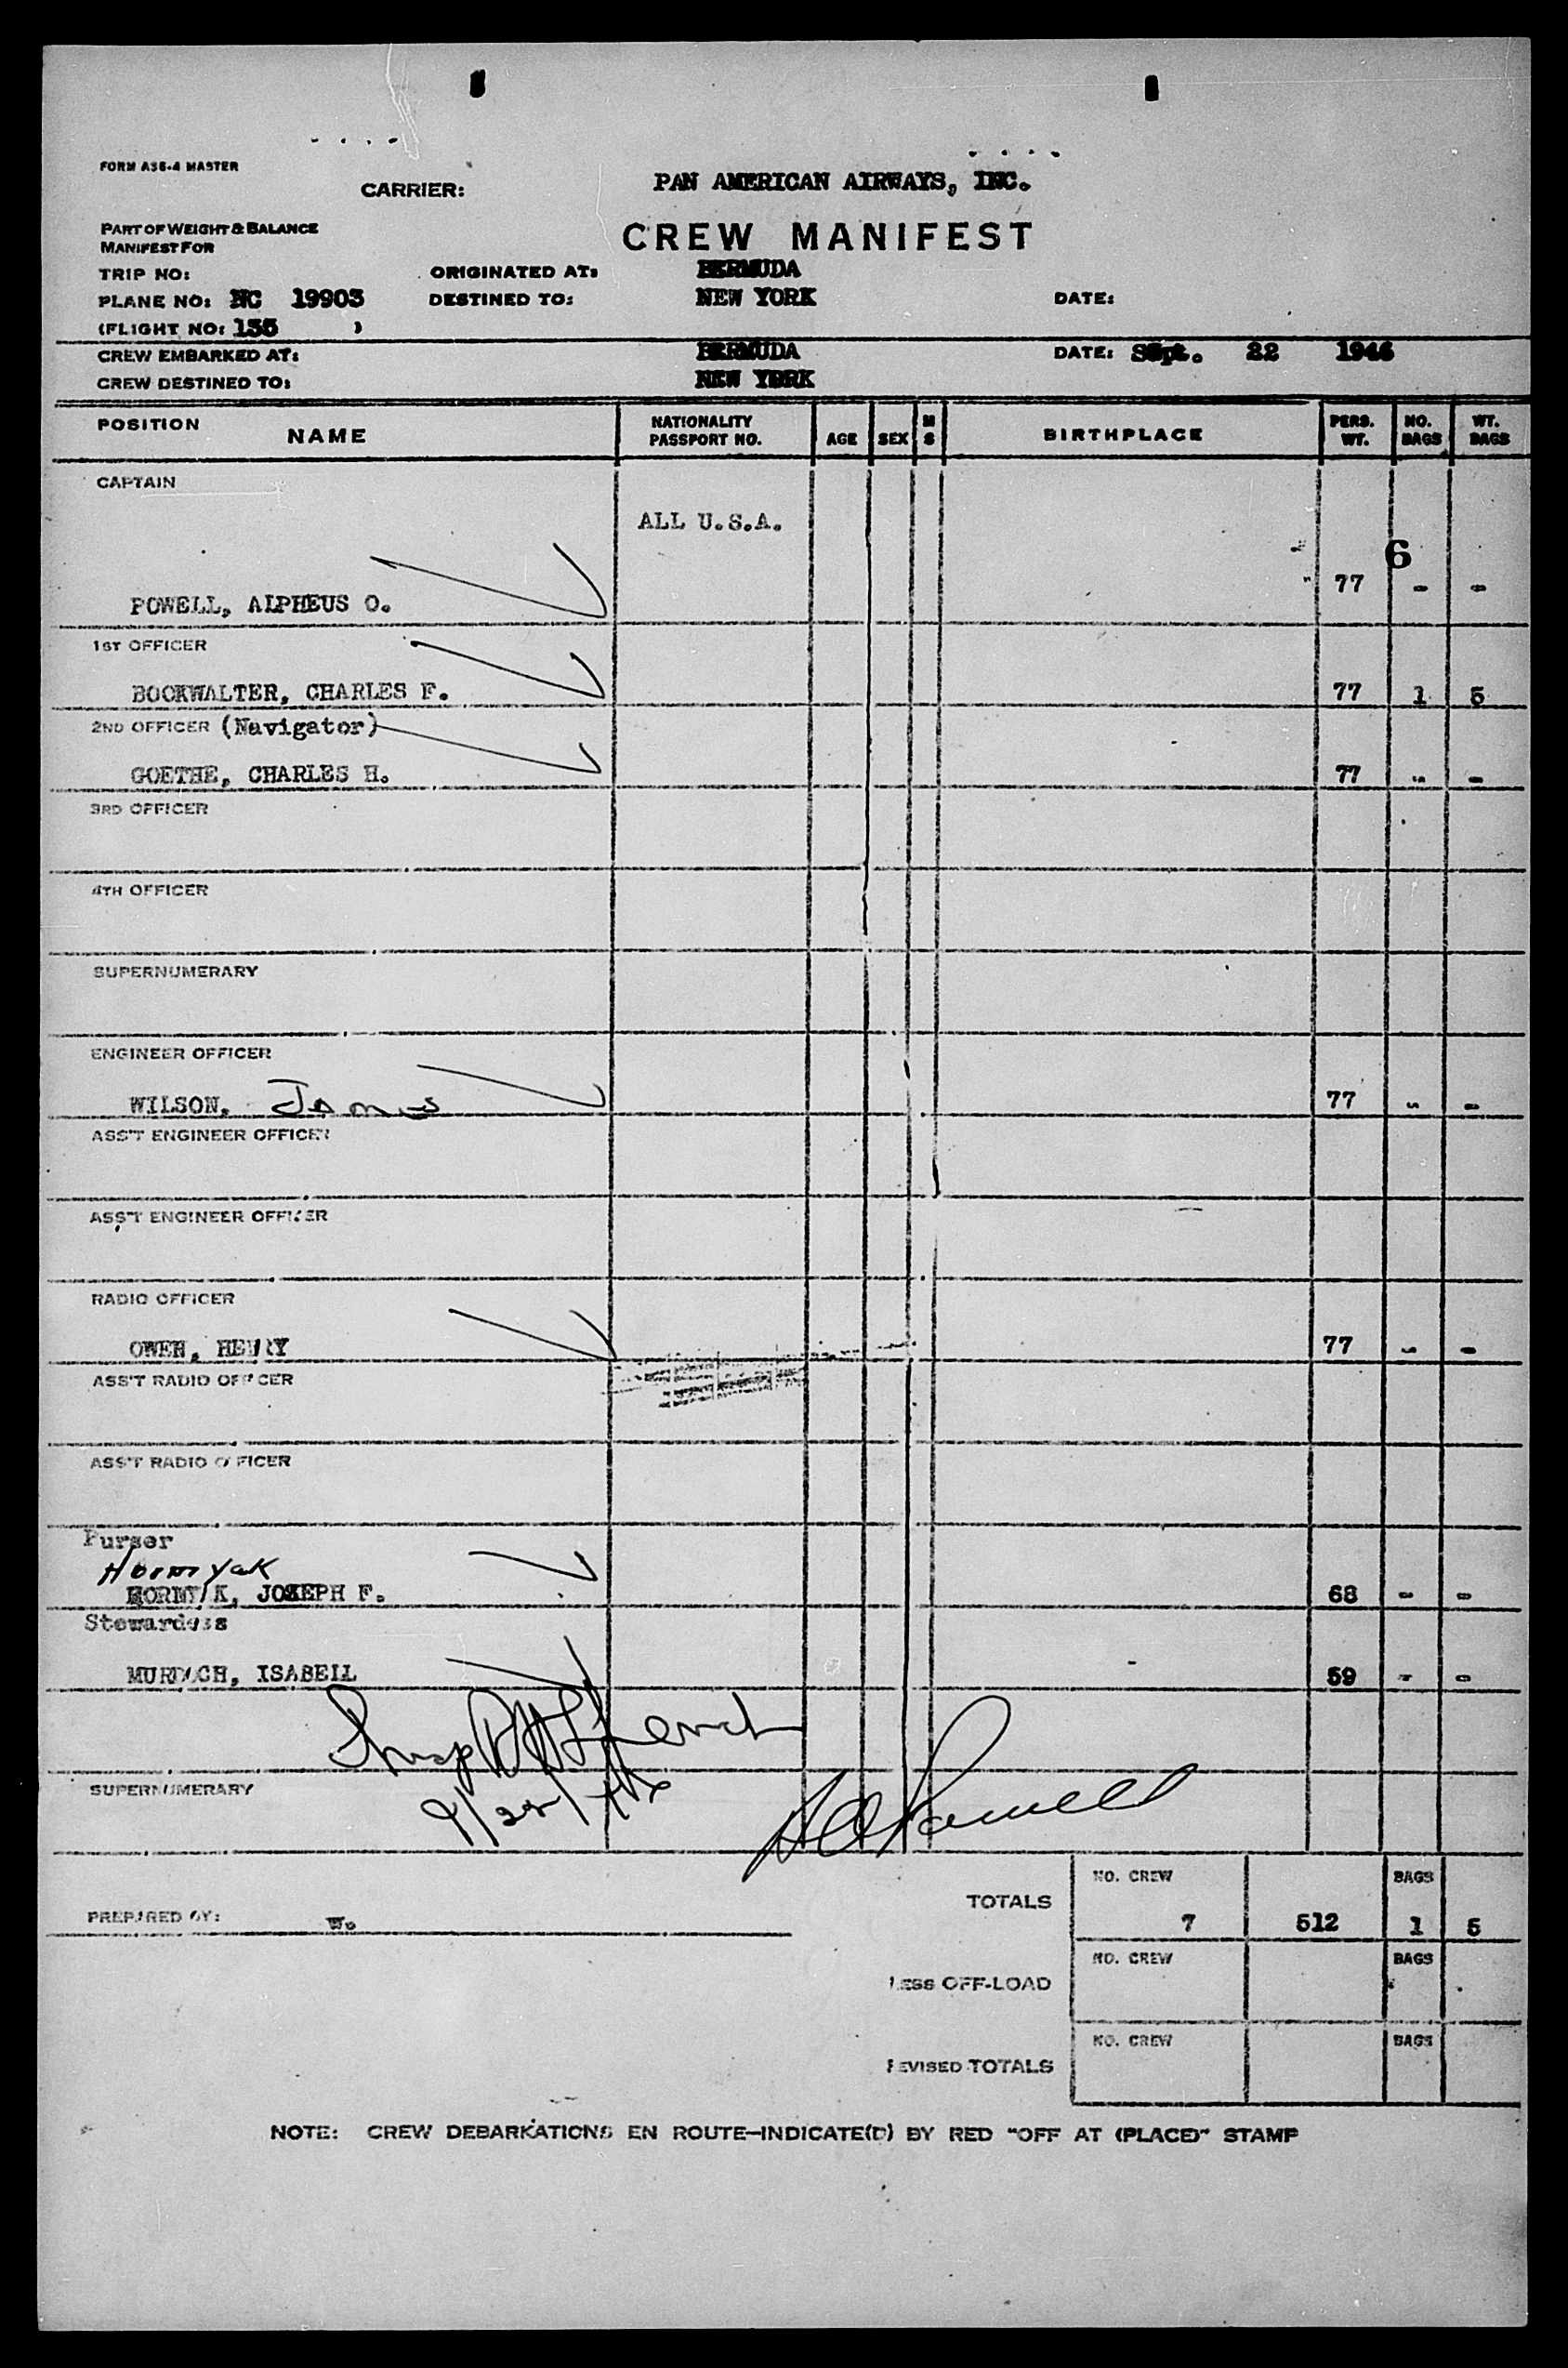 FORM A36-4 MASTER
CARRIER: PAN AMERICAN AIRWAYS, INC.
PART OF WEIGHT & BALANCE
MANIFEST FOR
CREW MANIFEST
TRIP NO: ORIGINATED AT: BERMUDA
PLANE NO: NC 19903 DESTINED TO: NEW YORK DATE:
(FLIGHT NO: 135 )
CREW EMBARKED AT: BERMUDA DATE: Sept. 22 1946
CREW DESTINED TO: NEW YORK
POSITION NAME NATIONALITY PASSPORT NO. AGE SEX M S BIRTHPLACE PERS. WT. NO. BAGS WT. BAGS
CAPTAIN
ALL U.S.A.
6
POWELL, ALPHEUS O. 77 - -
1ST OFFICER
BOOKWALTER, CHARLES F. 77 1 5
2ND OFFICER (Navigator)
GOETHE, CHARLES H. 77 - -
3RD OFFICER
4TH OFFICER
SUPERNUMERARY
ENGINEER OFFICER
WILSON, James 77 - -
ASS'T ENGINEER OFFICER
ASS'T ENGINEER OFFICER
RADIO OFFICER
OWEN, HENRY 77 - -
ASS'T RADIO OFFICER
ASS'T RADIO OFFICER
Purser
Hornyak
HORNYAK, JOSEPH F. 68 - -
Stewardess
MURDOCH, ISABELL 59 - -
9/22/46
SUPERNUMERARY
A O Powell
TOTALS NO. CREW 7 512 BAGS 1 5
PREPARED BY: W.
LESS OFF-LOAD NO. CREW BAGS
REVISED TOTALS NO. CREW BAGS
NOTE: CREW DEBARKATIONS EN ROUTE-INDICATE(D) BY RED "OFF AT (PLACE)" STAMP